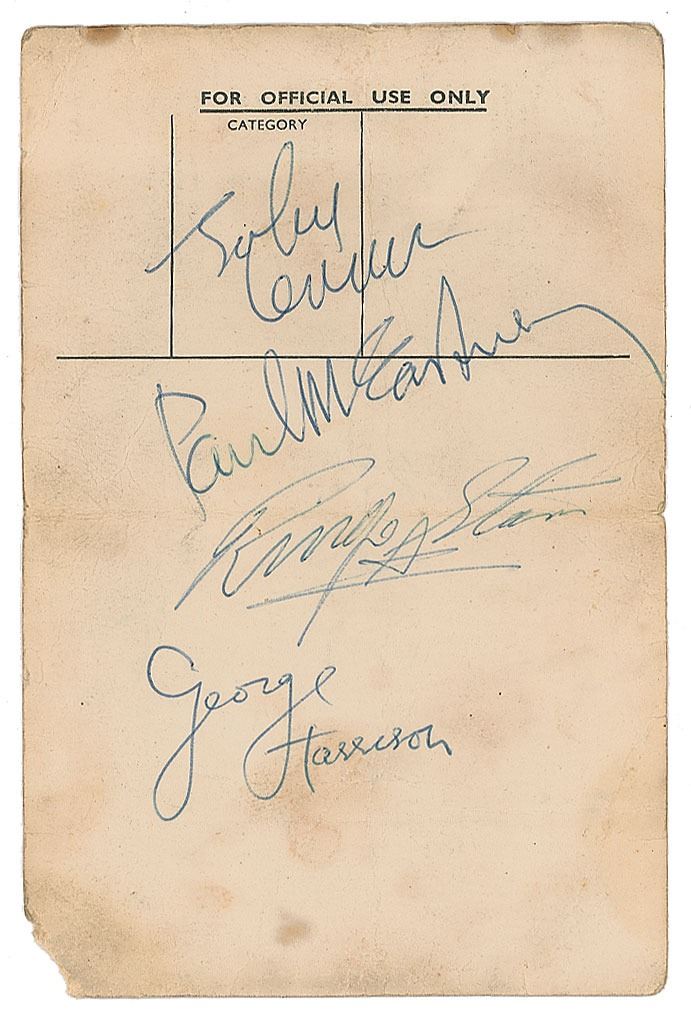 FOR OFFICIAL USE ONLY
CATEGORY
John
Lennon
Paul McCartney
Ringo Starr
George
Harrison